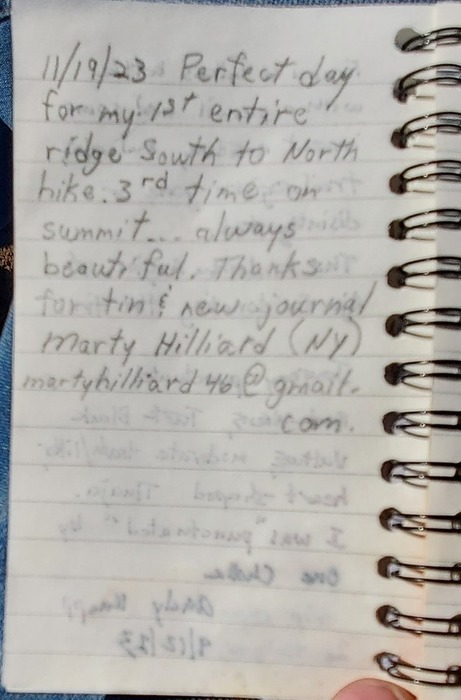 11/19/23 Perfect day
for my 1st entire
ridge South to North
hike. 3rd time on
summit... always
beautiful. Thanks
for tin & new journal
Marty Hilliard (NY)
martyhilliard46@gmail.
com.